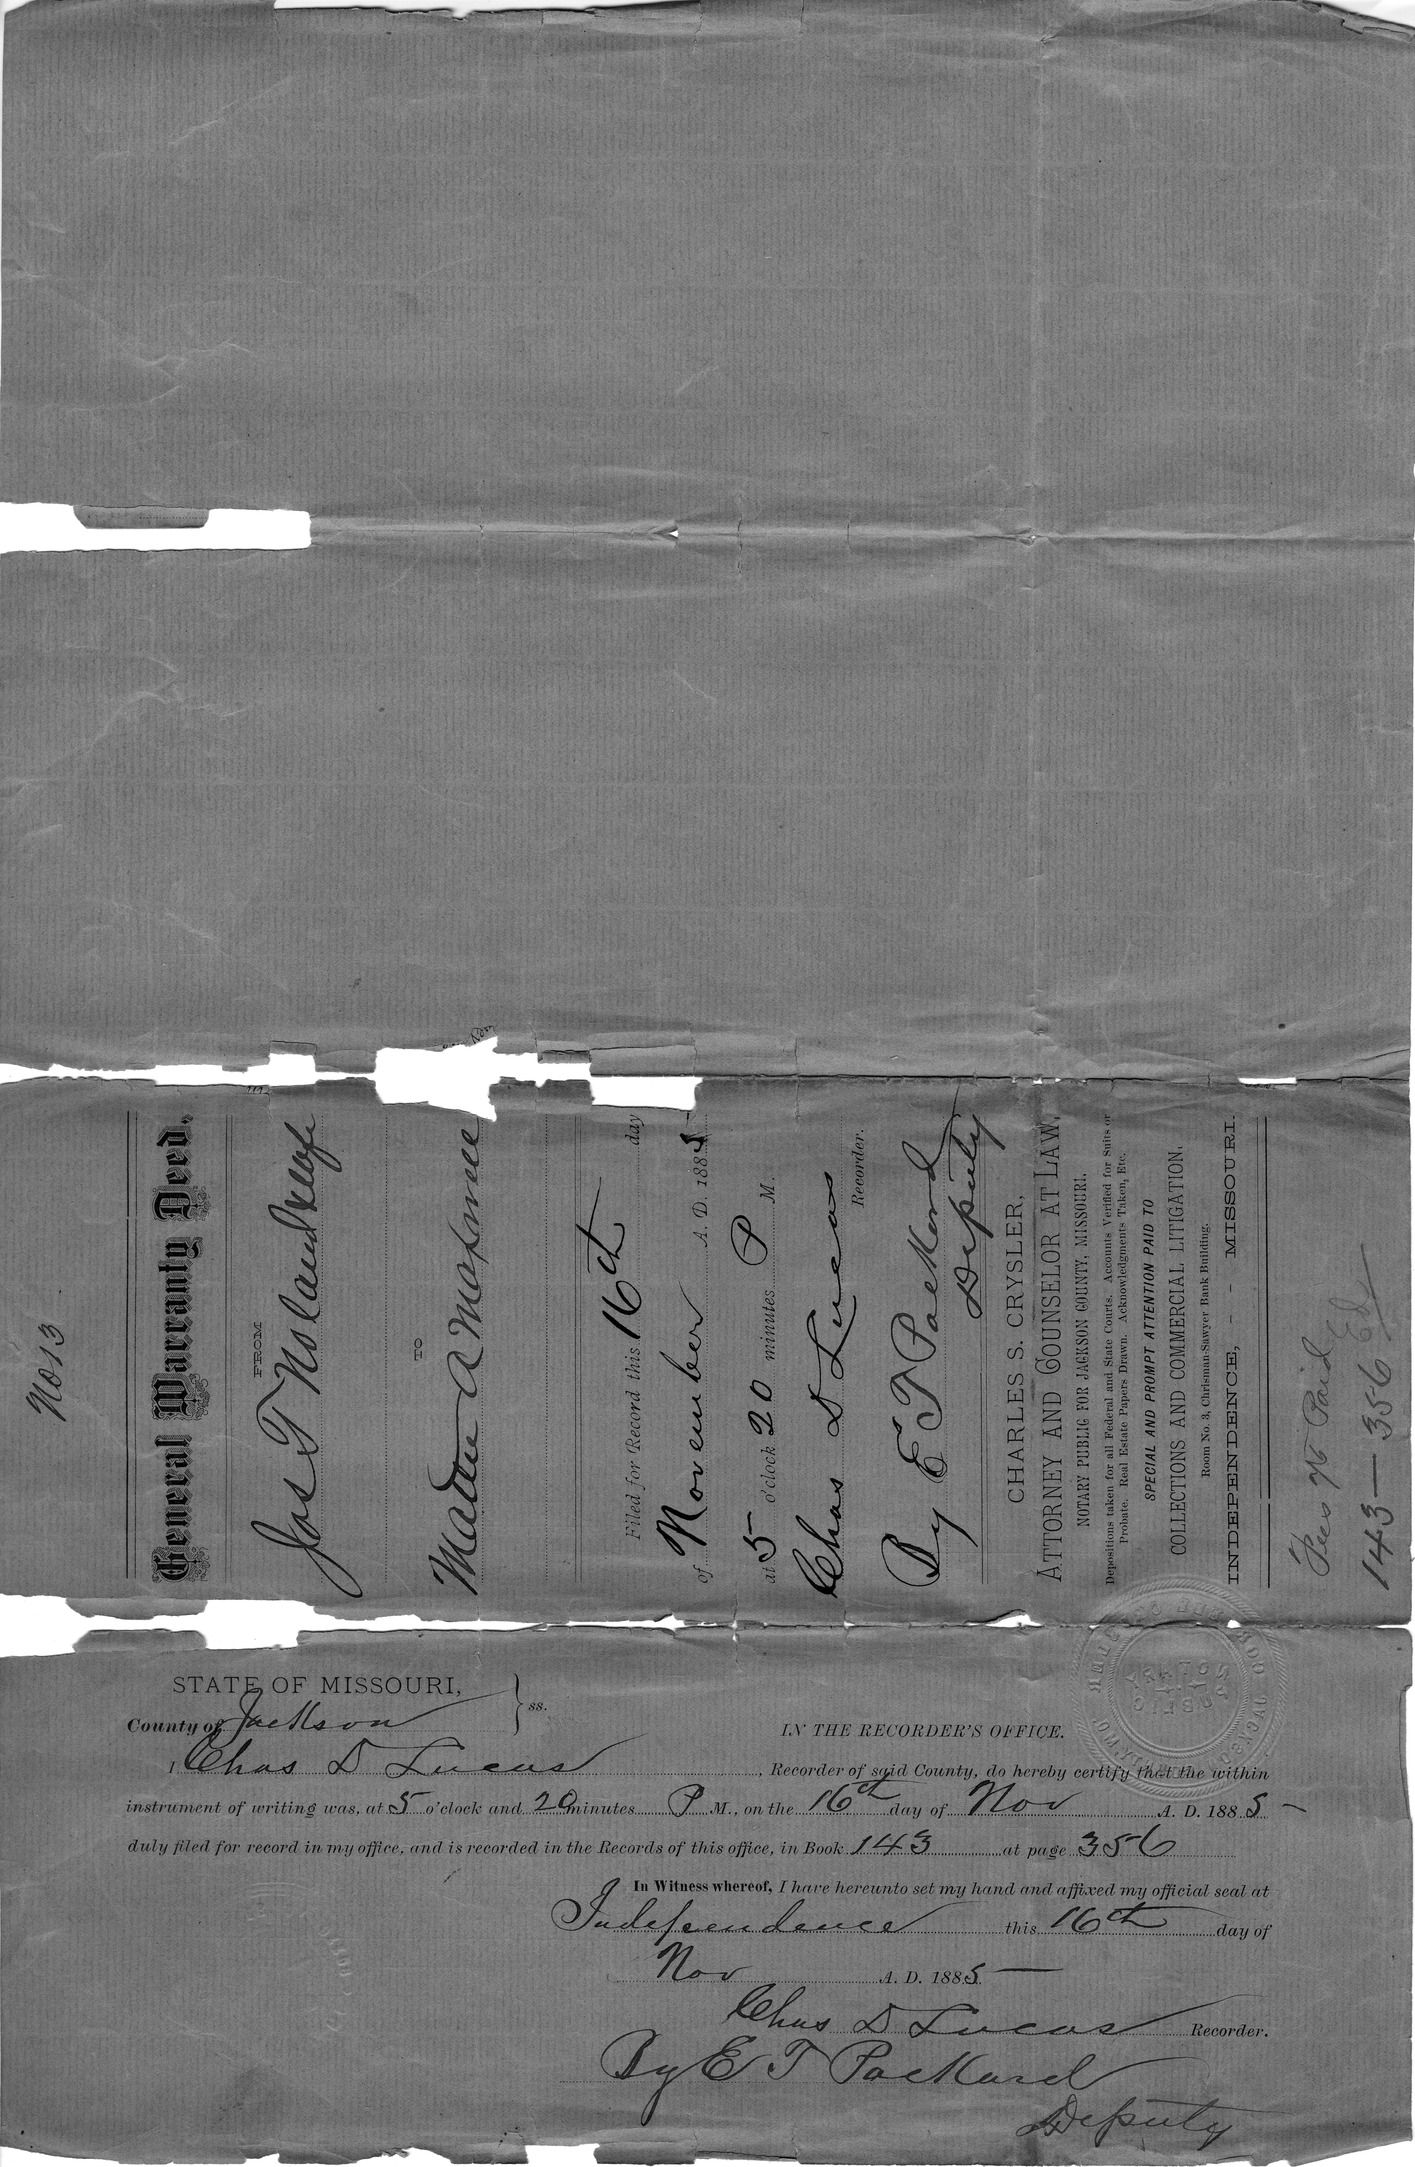 No 13
General Warranty Deed.
FROM
Jas T Noland & wife
TO
A
Filed for Record this 16th day
of November A. D. 1885
at 5 o'clock 20 minutes P M.
Chas D Lucas
Recorder.
By E T Packard
Deputy
CHARLES S. CRYSLER,
ATTORNEY AND COUNSELOR AT LAW,
NOTARY PUBLIC FOR JACKSON COUNTY, MISSOURI.
Depositions taken for all Federal and State Courts. Accounts Verified for Suits or
Probate. Real Estate Papers Drawn. Acknowledgments Taken, Etc.
SPECIAL AND PROMPT ATTENTION PAID TO
COLLECTIONS AND COMMERCIAL LITIGATION.
Room No. 3, Chrisman-Sawyer Bank Building.
INDEPENDENCE, - - MISSOURI.
Fees Paid
143 — 356 Ed
STATE OF MISSOURI, } ss.
County of Jackson
IN THE RECORDER'S OFFICE.
I Chas D Lucas, Recorder of said County, do hereby certify that the within
instrument of writing was, at 5 o'clock and 20 minutes P M., on the 16th day of Nov A. D. 1885
duly filed for record in my office, and is recorded in the Records of this office, in Book 143 at page 356
In Witness whereof, I have hereunto set my hand and affixed my official seal at
Independence this 16th day of
Nov A. D. 1885
Chas D Lucas Recorder.
By E T Packard
Deputy
NOTARY
PUBLIC